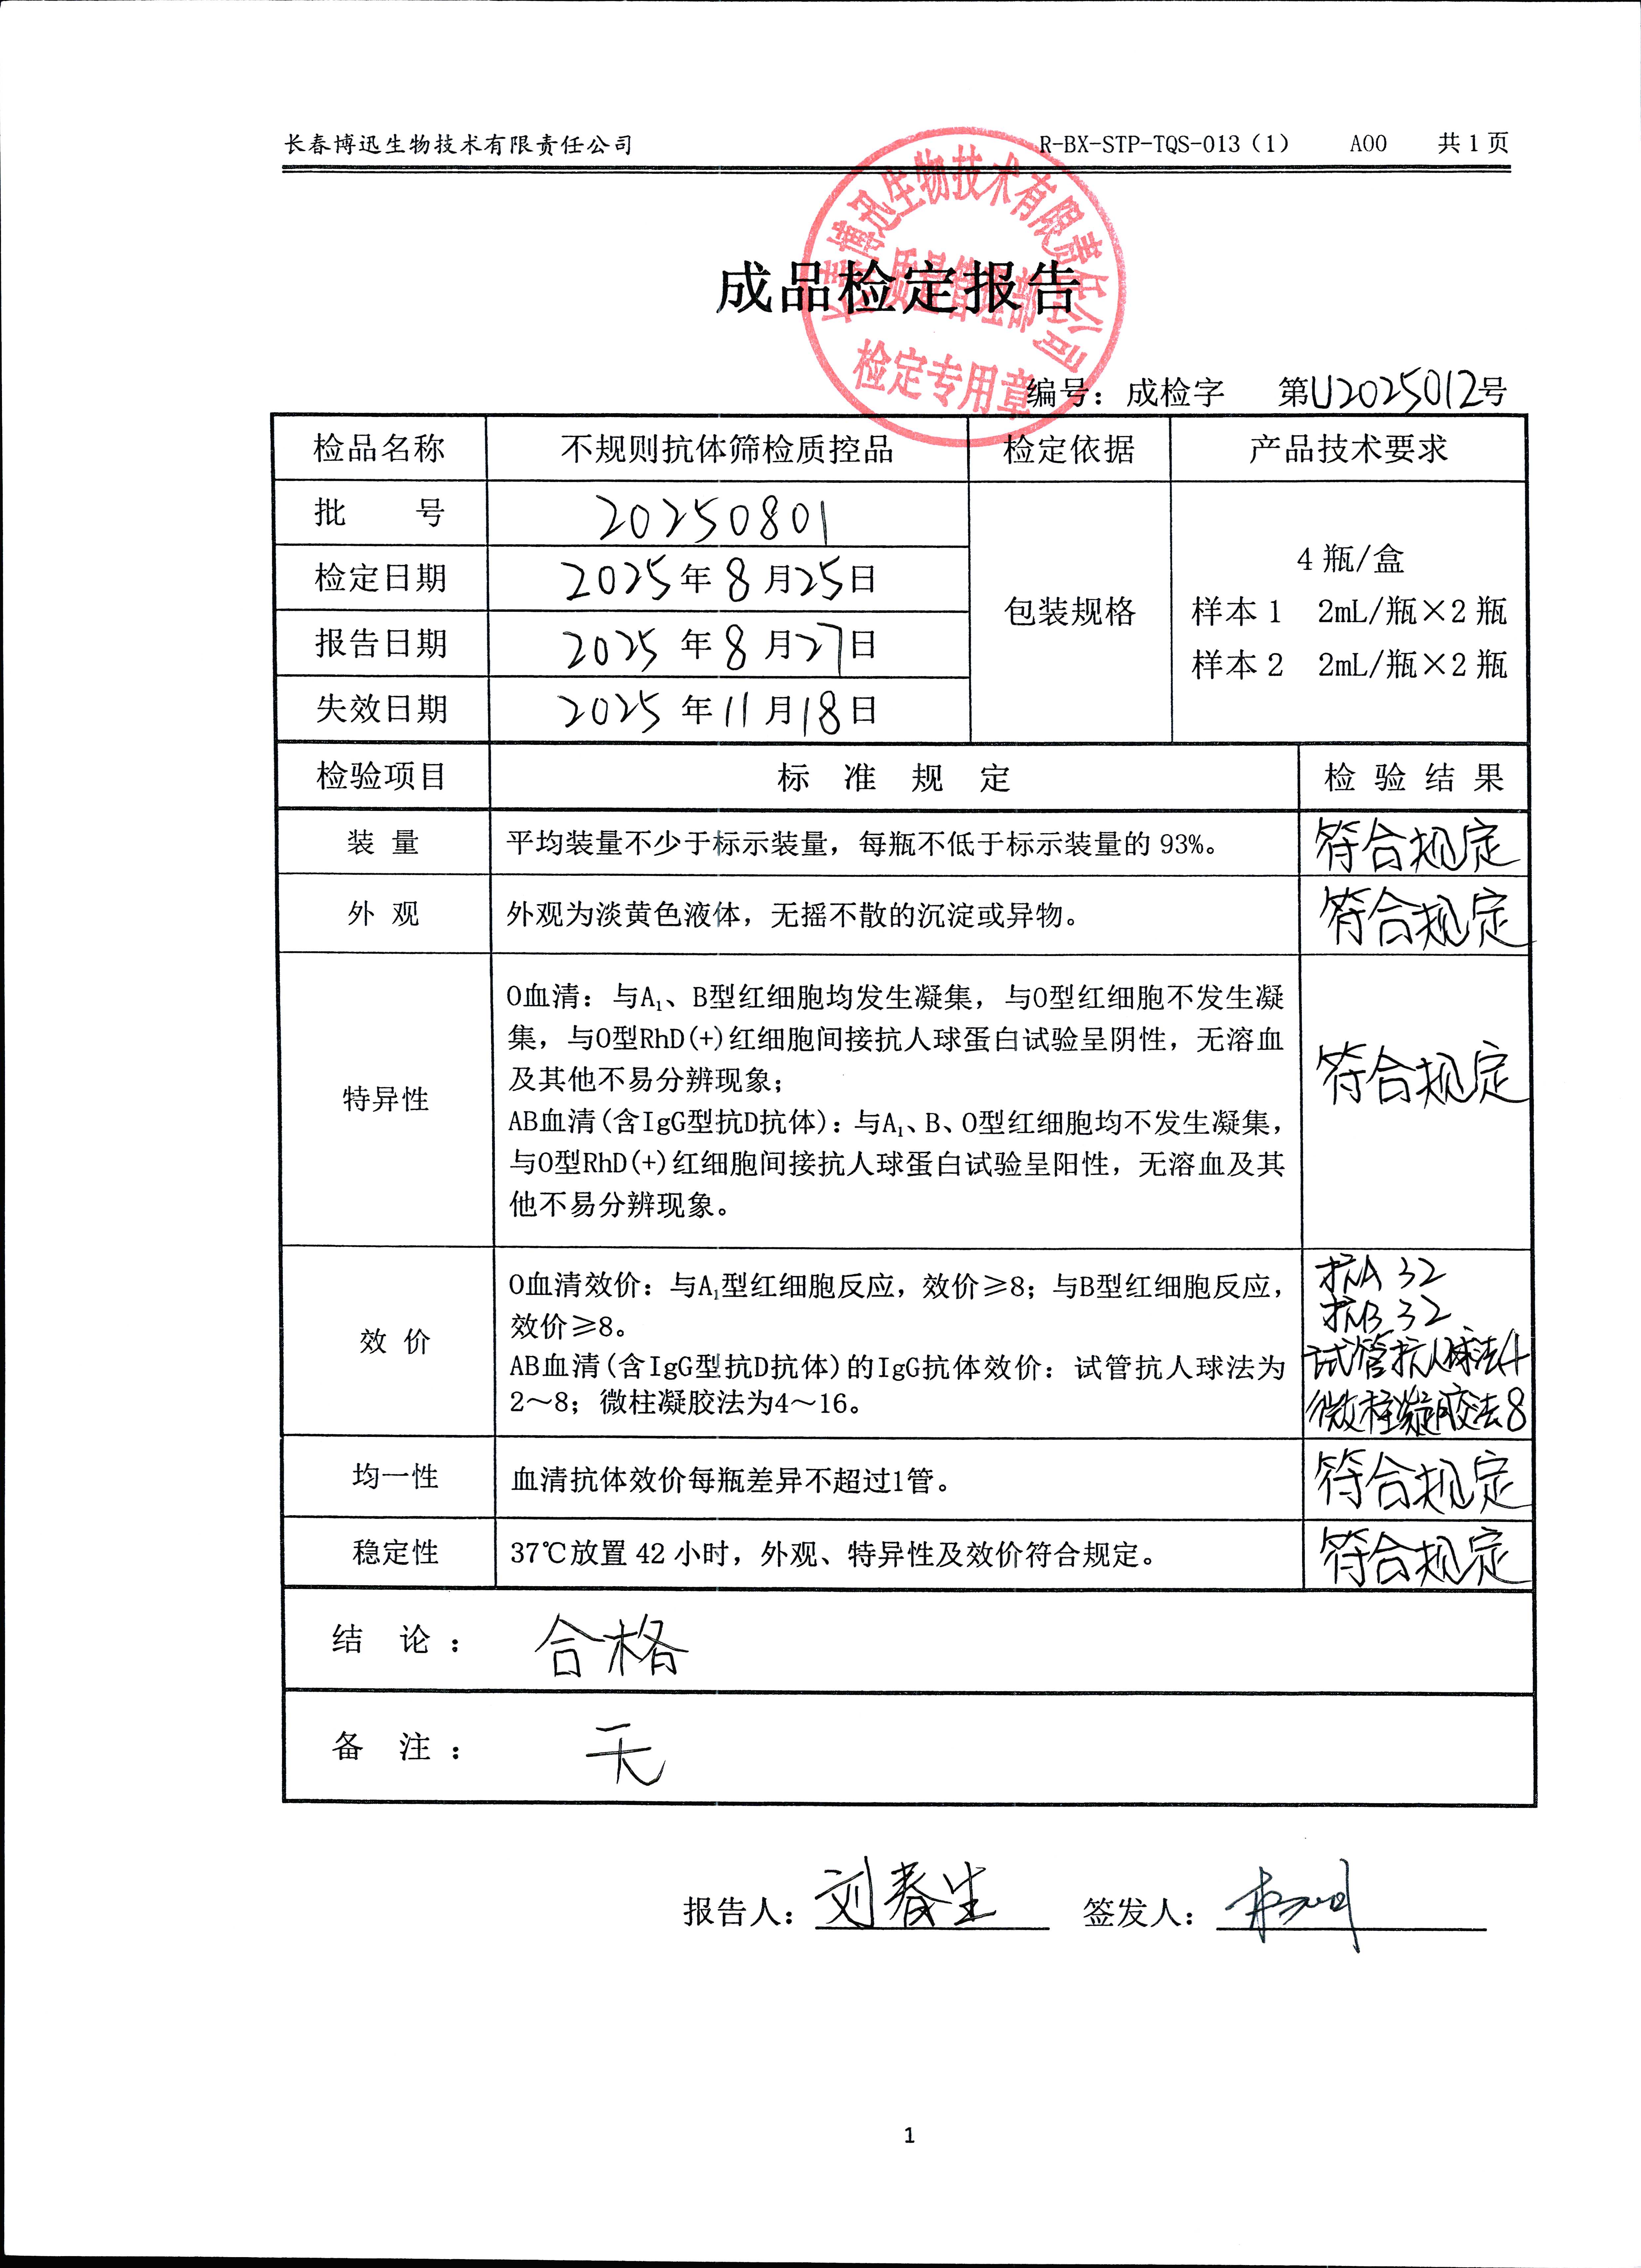 长春博迅生物技术有限责任公司 R-BX-STP-TQS-013（1） A00 共1页
长春博迅生物技术有限责任公司
质量管理部
检定专用章
成品检定报告
编号：成检字 第U2025012号
检品名称 不规则抗体筛检质控品 检定依据 产品技术要求
批 号 20250801
检定日期 2025年8月25日
报告日期 2025年8月27日
失效日期 2025年11月18日
包装规格
4瓶/盒
样本1 2mL/瓶×2瓶
样本2 2mL/瓶×2瓶
检验项目 标准规定 检验结果
装量 平均装量不少于标示装量，每瓶不低于标示装量的93%。 符合规定
外观 外观为淡黄色液体，无摇不散的沉淀或异物。 符合规定
特异性
O血清：与A₁、B型红细胞均发生凝集，与O型红细胞不发生凝
集，与O型RhD(+)红细胞间接抗人球蛋白试验呈阴性，无溶血
及其他不易分辨现象；
AB血清(含IgG型抗D抗体)：与A₁、B、O型红细胞均不发生凝集，
与O型RhD(+)红细胞间接抗人球蛋白试验呈阳性，无溶血及其
他不易分辨现象。
符合规定
效价
O血清效价：与A₁型红细胞反应，效价≥8；与B型红细胞反应，
效价≥8。
AB血清(含IgG型抗D抗体)的IgG抗体效价：试管抗人球法为
2～8；微柱凝胶法为4～16。
抗A 32
抗B 32
试管抗人球法4
微柱凝胶法8
均一性 血清抗体效价每瓶差异不超过1管。 符合规定
稳定性 37℃放置42小时，外观、特异性及效价符合规定。 符合规定
结 论： 合格
备 注： 无
报告人：刘春生 签发人：
1